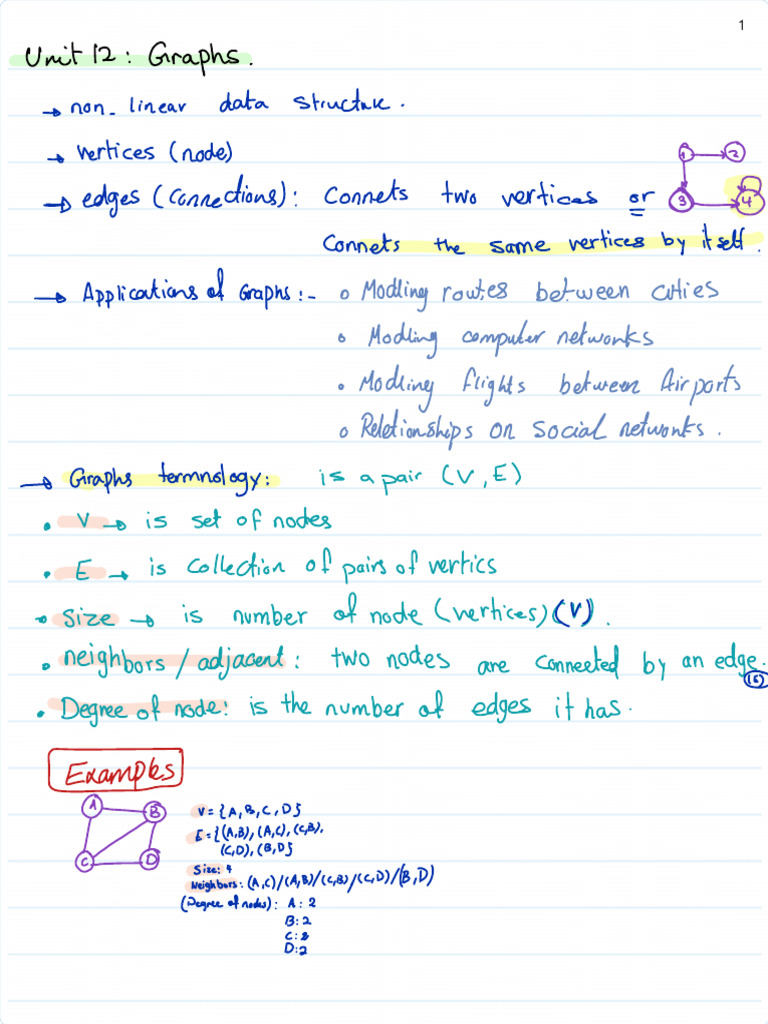 1
Unit 12: Graphs.
→ non-linear data structure.
→ vertices (node)
→ edges (connections): Connets two vertices or
1 2
3 4
Connets the same vertices by itself.
→ Applications of Graphs:- o Modling routes between cities
o Modling computer networks
• Modling flights between Airports
o Relationships on social networks.
→ Graphs termnology: is a pair (V, E)
• V → is set of nodes
• E → is collection of pairs of vertics
• size → is number of node (vertices) (V).
• neighbors / adjacent: two nodes are connected by an edge.
• Degree of node: is the number of edges it has.
Examples
A B
C D
V = {A, B, C, D}
E = {(A,B), (A,C), (C,B),
(C,D), (B,D}
Size: 4
Neighbors: (A,C)/(A,B)/(C,B)/(C,D)/(B,D)
(Degree of nodes): A: 2
B: 2
C:
D: 2